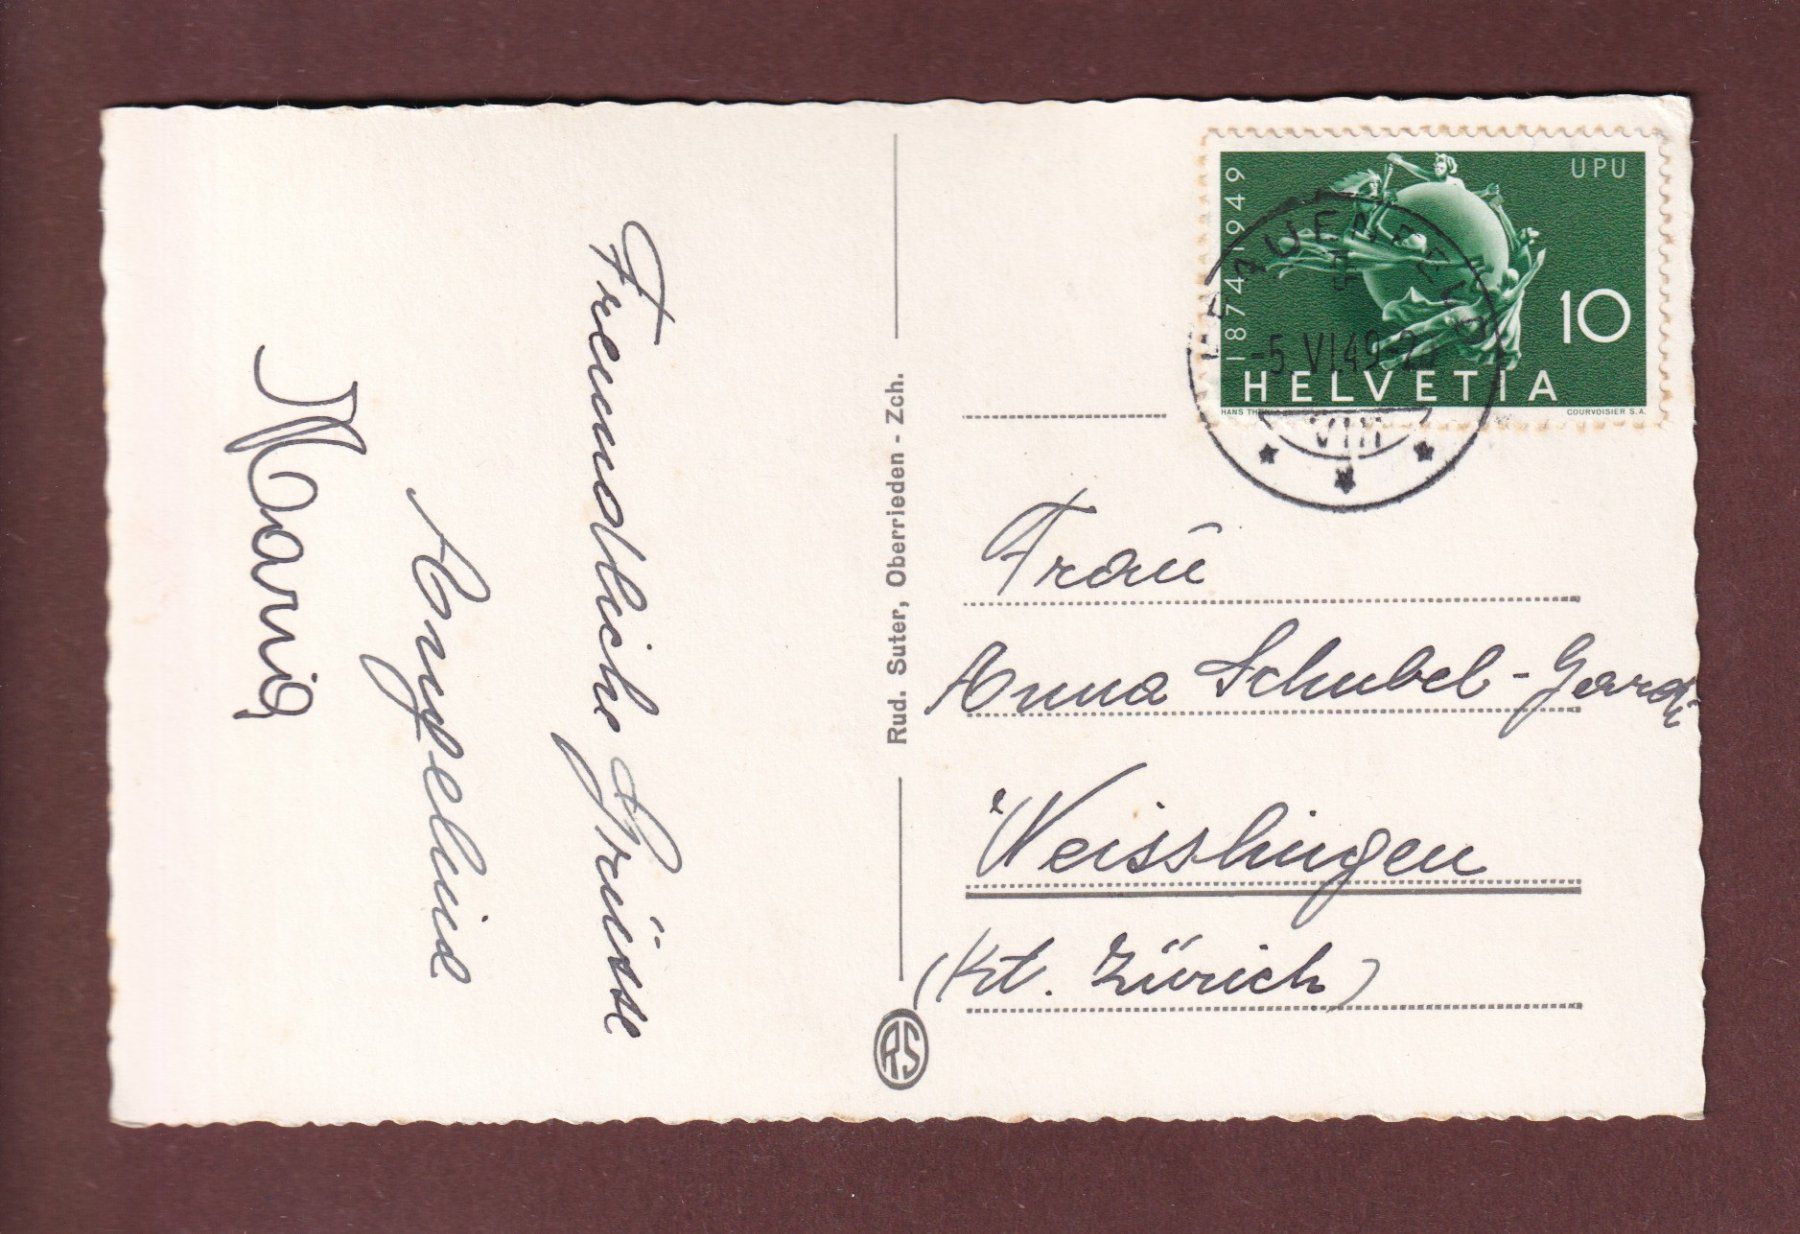 Freundliche Grüsse
Angelina
Maria
Rud. Suter, Oberrieden - Zch.
RS
1874 1949
UPU
10
HELVETIA
COURVOISIER S.A.
FRAUENFELD
-5.VI.49-2
VIII
Frau
Anna Schubel-
Weisslingen
(Kt. Zürich)